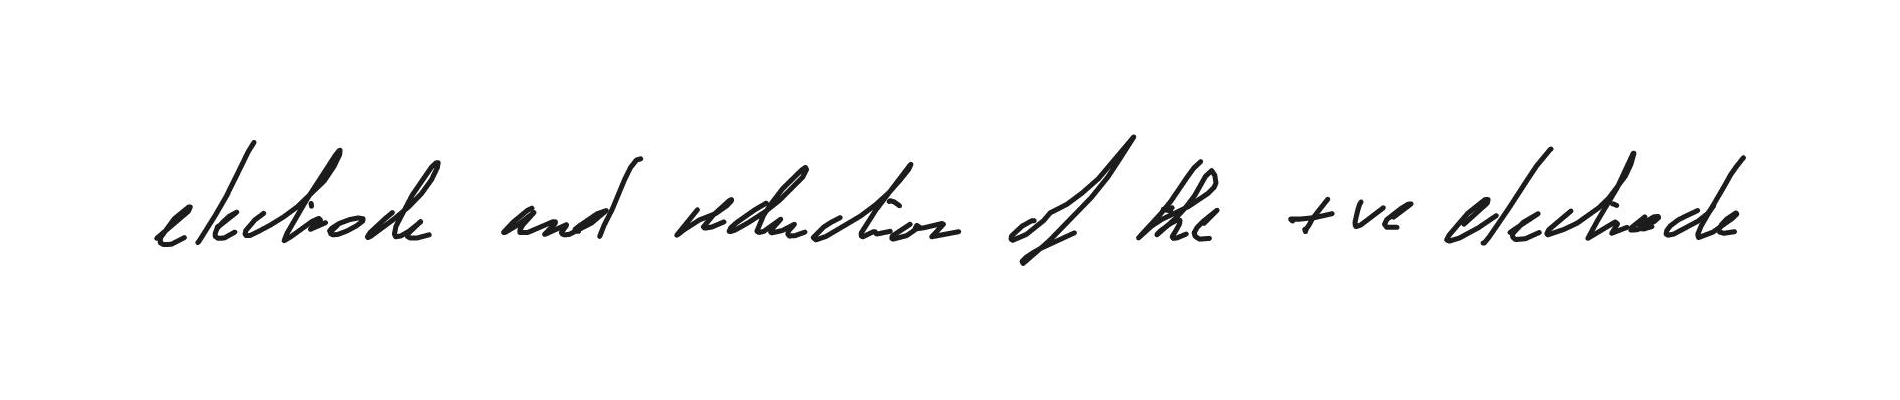 electrode and reduction of the +ve electrode